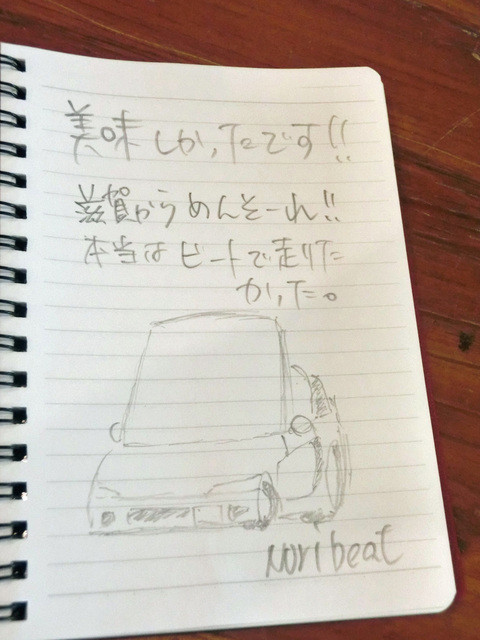 美味しかったです!!
滋賀からめんそーれ!!
本当はビートで走りた
かった。
Nori beat